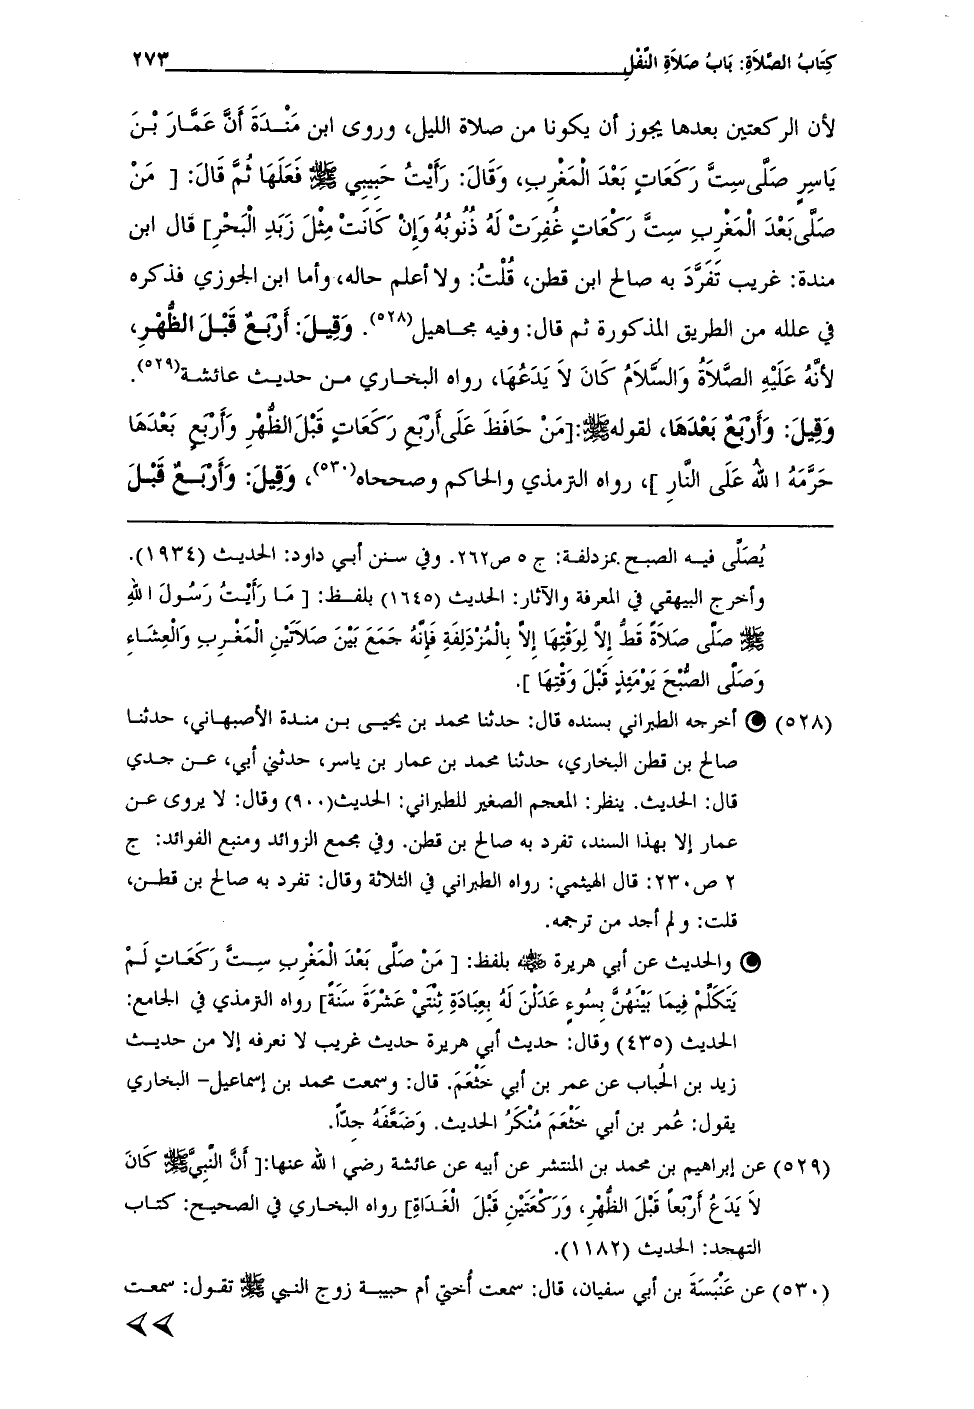 كِتَابُ الصَّلَاةِ: بَابُ صَلَاةِ النَّفْلِ ٢٧٣
لأن الركعتين بعدها يجوز أن يكونا من صلاة الليل، وروى ابن مَنْدَةَ أَنَّ عَمَّارَ بْنَ
يَاسِرٍ صَلَّى سِتَّ رَكَعَاتٍ بَعْدَ الْمَغْرِبِ، وَقَالَ: رَأَيْتُ حَبِيبِي ﷺ فَعَلَهَا ثُمَّ قَالَ: [ مَنْ
صَلَّى بَعْدَ الْمَغْرِبِ سِتَّ رَكْعَاتٍ غُفِرَتْ لَهُ ذُنُوبُهُ وَإِنْ كَانَتْ مِثْلَ زَبَدِ الْبَحْرِ] قال ابن
مندة: غريب تَفَرَّدَ به صالح ابن قطن، قُلْتُ: ولا أعلم حاله، وأما ابن الجوزي فذكره
في علله من الطريق المذكورة ثم قال: وفيه مجاهيل(٥٢٨). وَقِيلَ: أَرْبَعٌ قَبْلَ الظُّهْرِ،
لأَنَّهُ عَلَيْهِ الصَّلَاةُ وَالسَّلَامُ كَانَ لَا يَدَعُهَا، رواه البخاري من حديث عائشة(٥٢٩).
وَقِيلَ: وَأَرْبَعٌ بَعْدَهَا، لقوله ﷺ:[مَنْ حَافَظَ عَلَى أَرْبَعِ رَكَعَاتٍ قَبْلَ الظُّهْرِ وَأَرْبَعٍ بَعْدَهَا
حَرَّمَهُ اللهُ عَلَى النَّارِ ]، رواه الترمذي والحاكم وصححاه(٥٣٠)، وَقِيلَ: وَأَرْبَعٌ قَبْلَ
يُصَلَّى فيه الصبح بمزدلفة: ج ٥ ص٢٦٢. وفي سنن أبي داود: الحديث (١٩٣٤).
وأخرج البيهقي في المعرفة والآثار: الحديث (١٦٤٥) بلفظ: [ مَا رَأَيْتُ رَسُولَ اللهِ
ﷺ صَلَّى صَلَاةً قَطُّ إِلاَّ لِوَقْتِهَا إِلاَّ بِالْمُزْدَلِفَةِ فَإِنَّهُ جَمَعَ بَيْنَ صَلَاتَيْنِ الْمَغْرِبِ وَالْعِشَاءِ
وَصَلَّى الصُّبْحَ يَوْمَئِذٍ قَبْلَ وَقْتِهَا ].
(٥٢٨) أخرجه الطبراني بسنده قال: حدثنا محمد بن يحيى بن مندة الأصبهاني، حدثنا
صالح بن قطن البخاري، حدثنا محمد بن عمار بن ياسر، حدثني أبي، عن جدي
قال: الحديث. ينظر: المعجم الصغير للطبراني: الحديث(٩٠٠) وقال: لا يروى عن
عمار إلا بهذا السند، تفرد به صالح بن قطن. وفي مجمع الزوائد ومنبع الفوائد: ج
٢ ص٢٣٠: قال الهيثمي: رواه الطبراني في الثلاثة وقال: تفرد به صالح بن قطن،
قلت: ولم أجد من ترجمه.
والحديث عن أبي هريرة ﵁ بلفظ: [ مَنْ صَلَّى بَعْدَ الْمَغْرِبِ سِتَّ رَكَعَاتٍ لَمْ
يَتَكَلَّمْ فِيمَا بَيْنَهُنَّ بِسُوءٍ عَدَلْنَ لَهُ بِعِبَادَةِ ثِنْتَيْ عَشْرَةَ سَنَةً] رواه الترمذي في الجامع:
الحديث (٤٣٥) وقال: حديث أبي هريرة حديث غريب لا نعرفه إلا من حديث
زيد بن الحُباب عن عمر بن أبي خَثْعَمَ. قال: وسمعت محمد بن إسماعيل- البخاري
يقول: عُمر بن أبي خَثْعَمَ مُنْكَرُ الحديث. وَضَعَّفَهُ جِدّاً.
(٥٢٩) عن إبراهيم بن محمد بن المنتشر عن أبيه عن عائشة رضي الله عنها:[ أَنَّ النَّبِيَّ ﷺ كَانَ
لاَ يَدَعُ أَرْبَعاً قَبْلَ الظُّهْرِ، وَرَكْعَتَيْنِ قَبْلَ الْغَدَاةِ] رواه البخاري في الصحيح: كتاب
التهجد: الحديث (١١٨٢).
(٥٣٠) عن عَنْبَسَةَ بن أبي سفيان، قال: سمعت أُختي أم حبيبة زوج النبي ﷺ تقول: سمعت